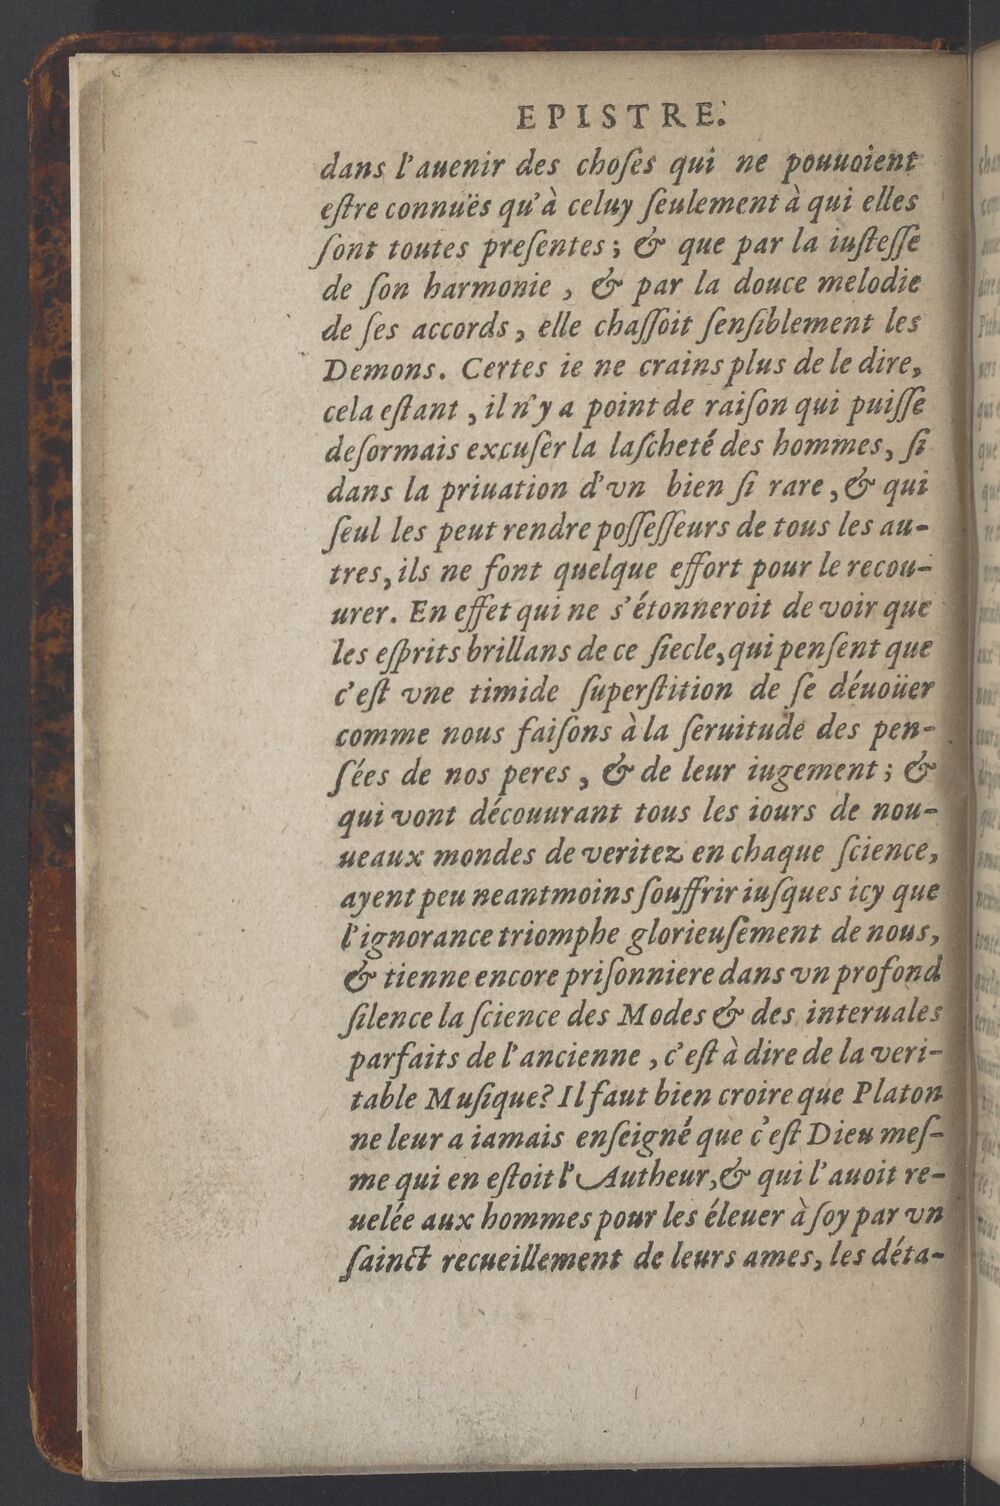 EPISTRE.
dans l'auenir des choſes qui ne pouuoient
eſtre connuës qu'à celuy ſeulement à qui elles
ſont toutes preſentes; & que par la iuſteſſe
de ſon harmonie, & par la douce melodie
de ſes accords, elle chaſſoit ſenſiblement les
Demons. Certes ie ne crains plus de le dire,
cela eſtant, il n'y a point de raiſon qui puiſſe
deſormais excuſer la laſcheté des hommes, ſi
dans la priuation d'vn bien ſi rare, & qui
ſeul les peut rendre poſſeſſeurs de tous les au-
tres, ils ne font quelque effort pour le recou-
urer. En effet qui ne s'étonneroit de voir que
les eſprits brillans de ce ſiecle, qui penſent que
c'eſt vne timide ſuperſtition de ſe déuoüer
comme nous faiſons à la ſeruitude des pen-
ſées de nos peres, & de leur iugement; &
qui vont découurant tous les iours de nou-
ueaux mondes de veritez en chaque ſcience,
ayent peu neantmoins ſouffrir iuſques icy que
l'ignorance triomphe glorieuſement de nous,
& tienne encore priſonniere dans vn profond
ſilence la ſcience des Modes & des interuales
parfaits de l'ancienne, c'eſt à dire de la veri-
table Muſique? Il faut bien croire que Platon
ne leur a iamais enſeigné que c'eſt Dieu meſ-
me qui en eſtoit l'Autheur, & qui l'auoit re-
uelée aux hommes pour les éleuer à ſoy par vn
ſainct recueillement de leurs ames, les déta-